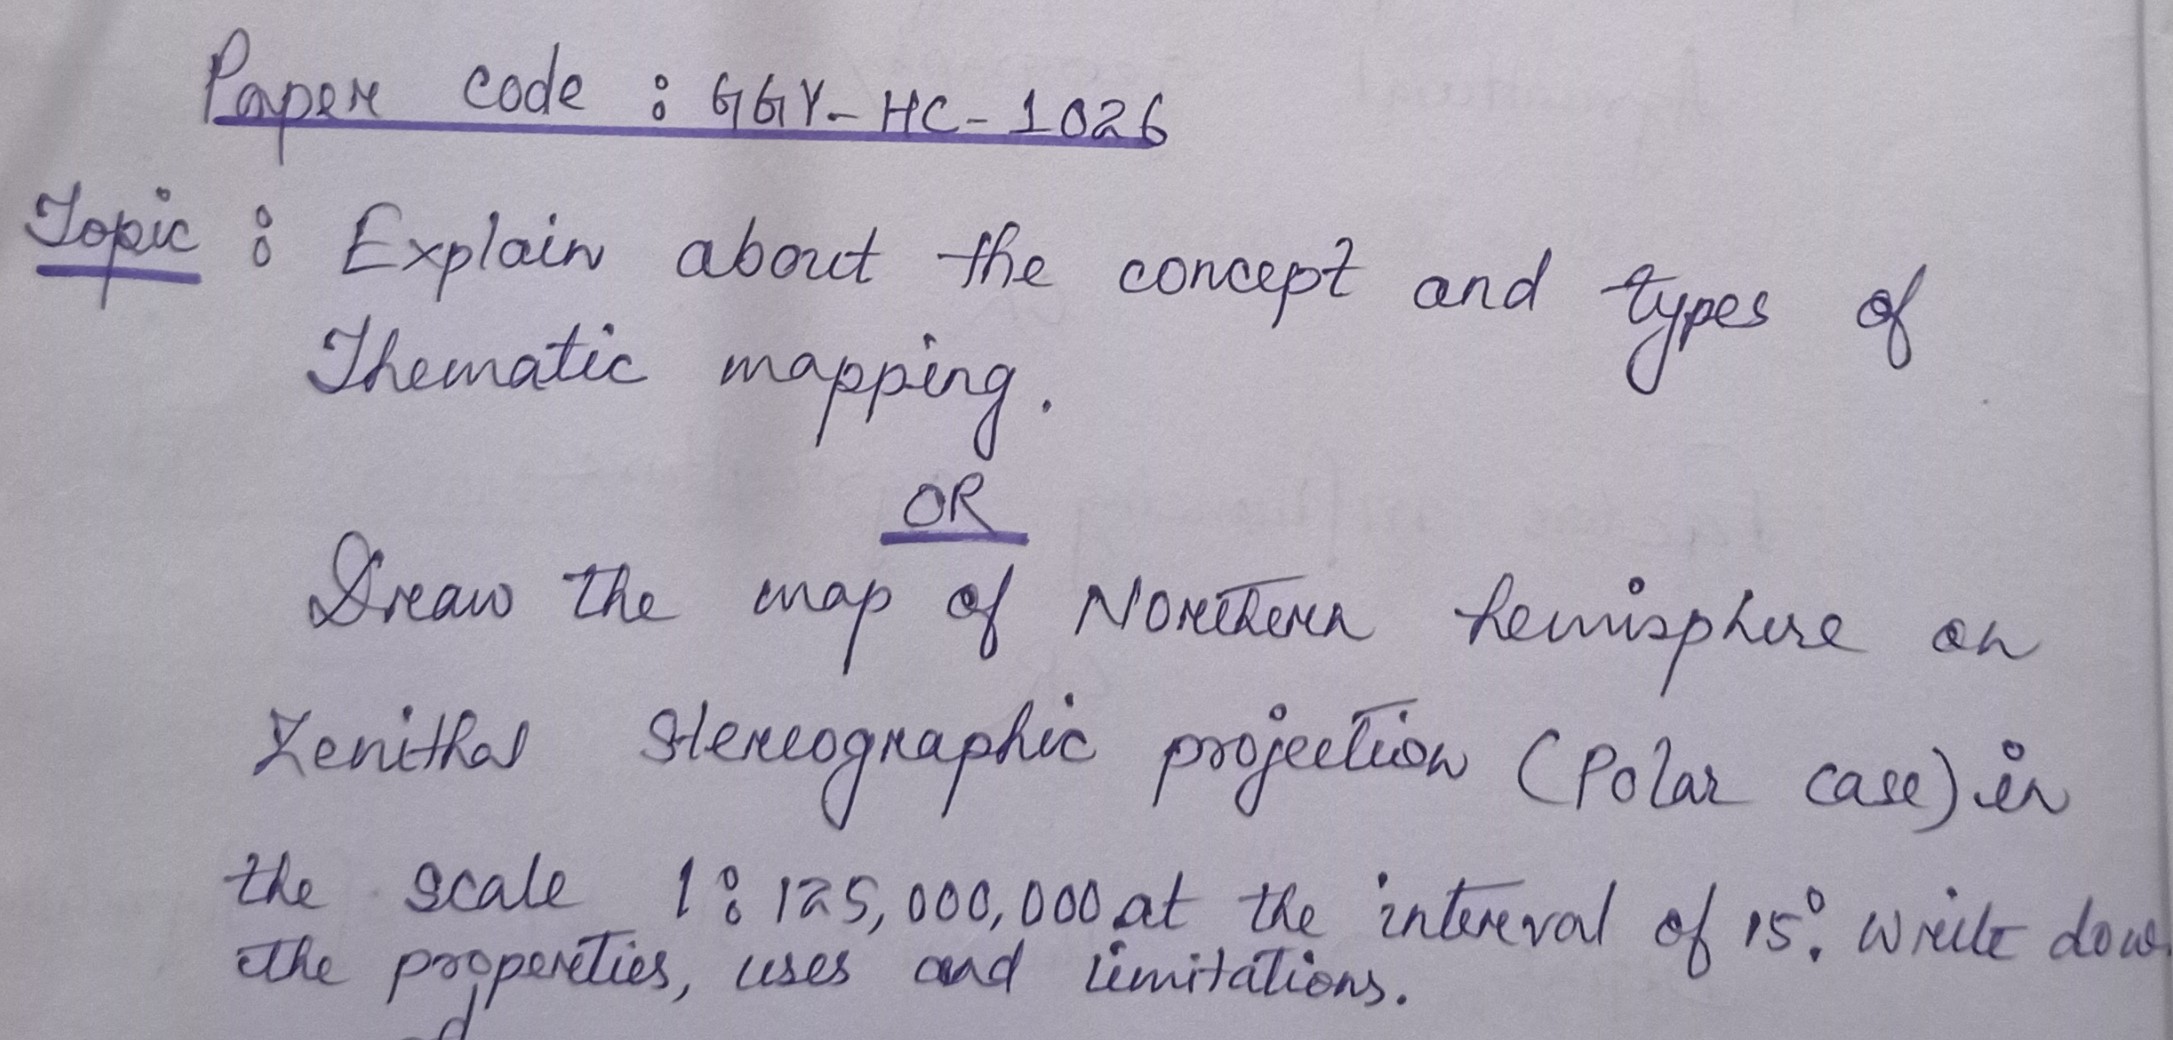 Paper code : GGY-HC-1026
Topic : Explain about the concept and types of
Thematic mapping.
OR
Draw the map of Northern hemisphere on
Zenithal Stereographic projection (Polar case) in
the scale 1:125,000,000 at the interval of 15°. Write down
the properties, uses and limitations.